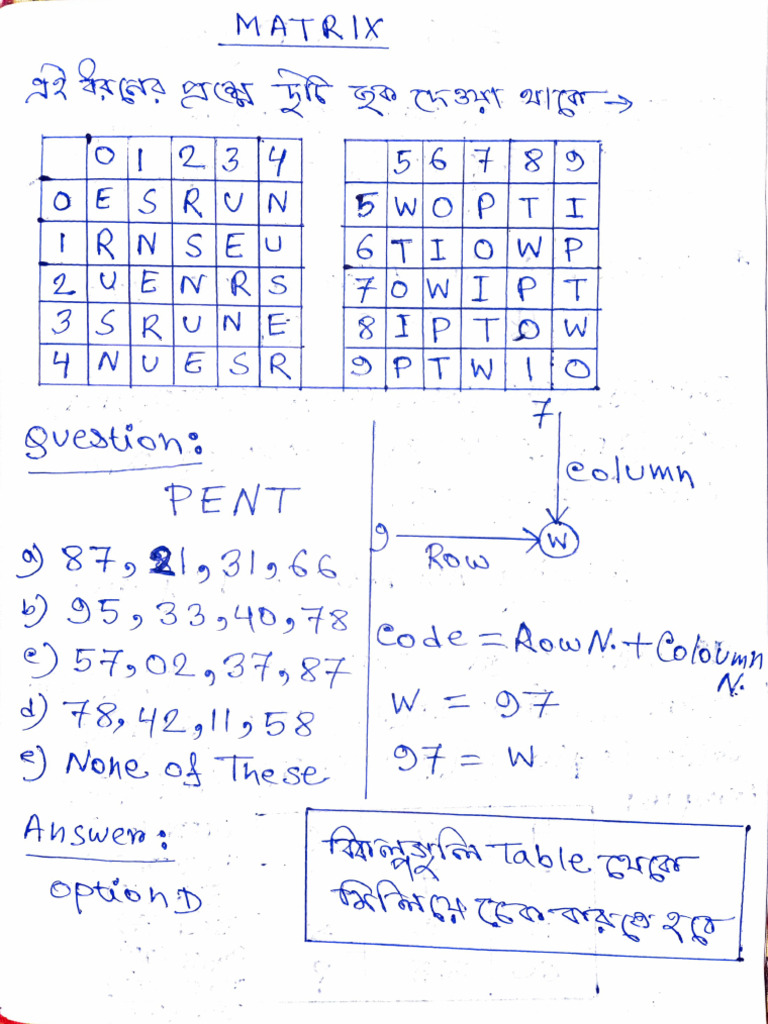 MATRIX
এই ধরনের প্রশ্নে দুটি ছক দেওয়া থাকে →
0 1 2 3 4
0 E S R U N
1 R N S E U
2 U E N R S
3 S R U N E
4 N U E S R
5 6 7 8 9
5 W O P T I
6 T I O W P
7 O W I P T
8 I P T O W
9 P T W I O
Question:
PENT
a) 87, 21, 31, 66
b) 95, 33, 40, 78
c) 57, 02, 37, 87
d) 78, 42, 11, 58
e) None of These
Answer:
Option D
7
Column
9 Row W
Code = Row N. + Coloumn N.
W = 97
97 = W
বিকল্পগুলি Table থেকে
মিলিয়ে চেক করতে হবে